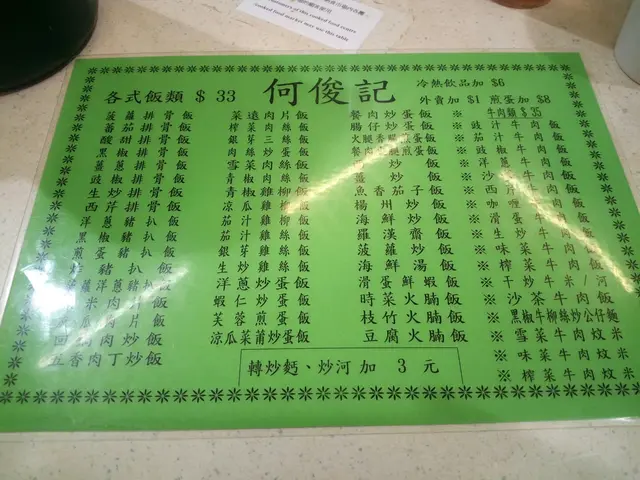 cooked food market may use this table
何俊記
各式飯類 $ 33
冷熱飲品加 $6
外賣加 $1 煎蛋加 $8
菠蘿排骨飯
蕃茄排骨飯
酸甜排骨飯
黑椒排骨飯
薑蔥排骨飯
豉椒排骨飯
生炒排骨飯
西芹排骨飯
洋蔥豬扒飯
黑椒豬扒飯
煎蛋豬扒飯
豬扒飯
洋蔥豬扒飯
肉片飯
肉片飯
回鍋肉片飯
五香肉丁炒飯
菜遠肉片飯
榨菜肉絲飯
銀芽三絲飯
肉絲炒蛋飯
雪菜肉絲飯
青椒肉絲飯
青椒雞柳飯
涼瓜雞柳飯
茄汁雞柳飯
茄汁雞絲飯
銀芽雞絲飯
生炒雞絲飯
洋蔥炒蛋飯
蝦仁炒蛋飯
芙蓉煎蛋飯
涼瓜菜莆炒蛋飯
餐肉炒蛋飯
腸仔炒蛋飯
火腿煎蛋飯
餐肉煎蛋飯
炒飯
薑炒飯
魚香茄子飯
楊州炒飯
海鮮炒飯
羅漢齋飯
菠蘿炒飯
海鮮湯飯
滑蛋鮮蝦飯
時菜火腩飯
枝竹火腩飯
豆腐火腩飯
※ 牛肉類 $ 35
※ 豉汁牛肉飯
※ 茄汁牛肉飯
※ 豉椒牛肉飯
※ 洋蔥牛肉飯
※ 沙爹牛肉飯
※ 西芹牛肉飯
※ 咖喱牛肉飯
※ 滑蛋牛肉飯
※ 生炒牛肉飯
※ 味菜牛肉飯
※ 榨菜牛肉飯
※ 干炒牛米/河
※ 沙茶牛肉飯
※ 黑椒牛柳絲炒公仔麵
※ 雪菜牛肉炆米
※ 味菜牛肉炆米
※ 榨菜牛肉炆米
轉炒麵、炒河加 3 元